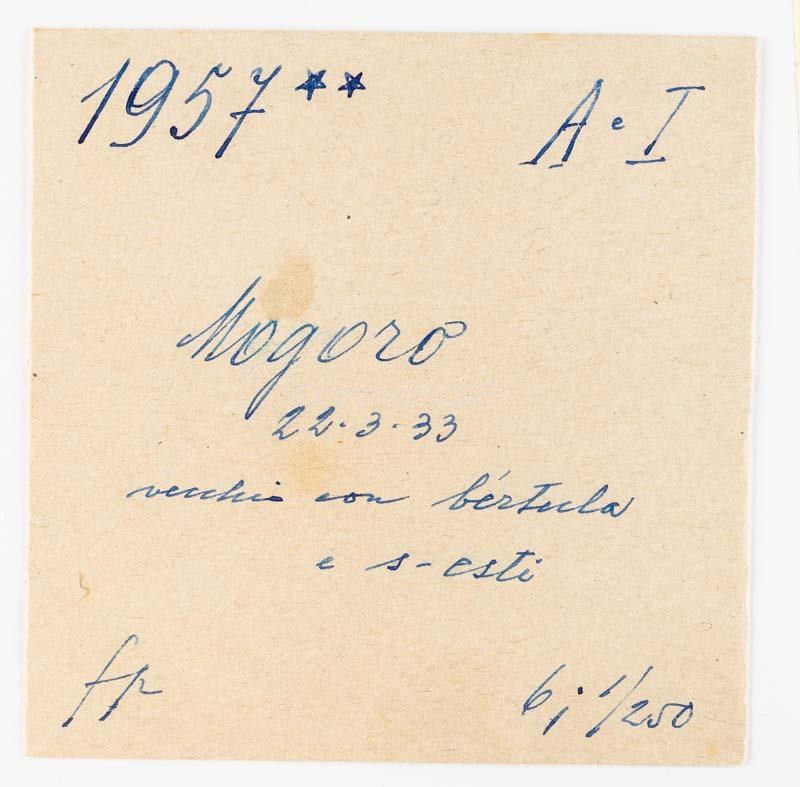 1957** A e I
Mogoro
22-3-33
vecchio con bértula
e s-esti
fp 6; 1/250